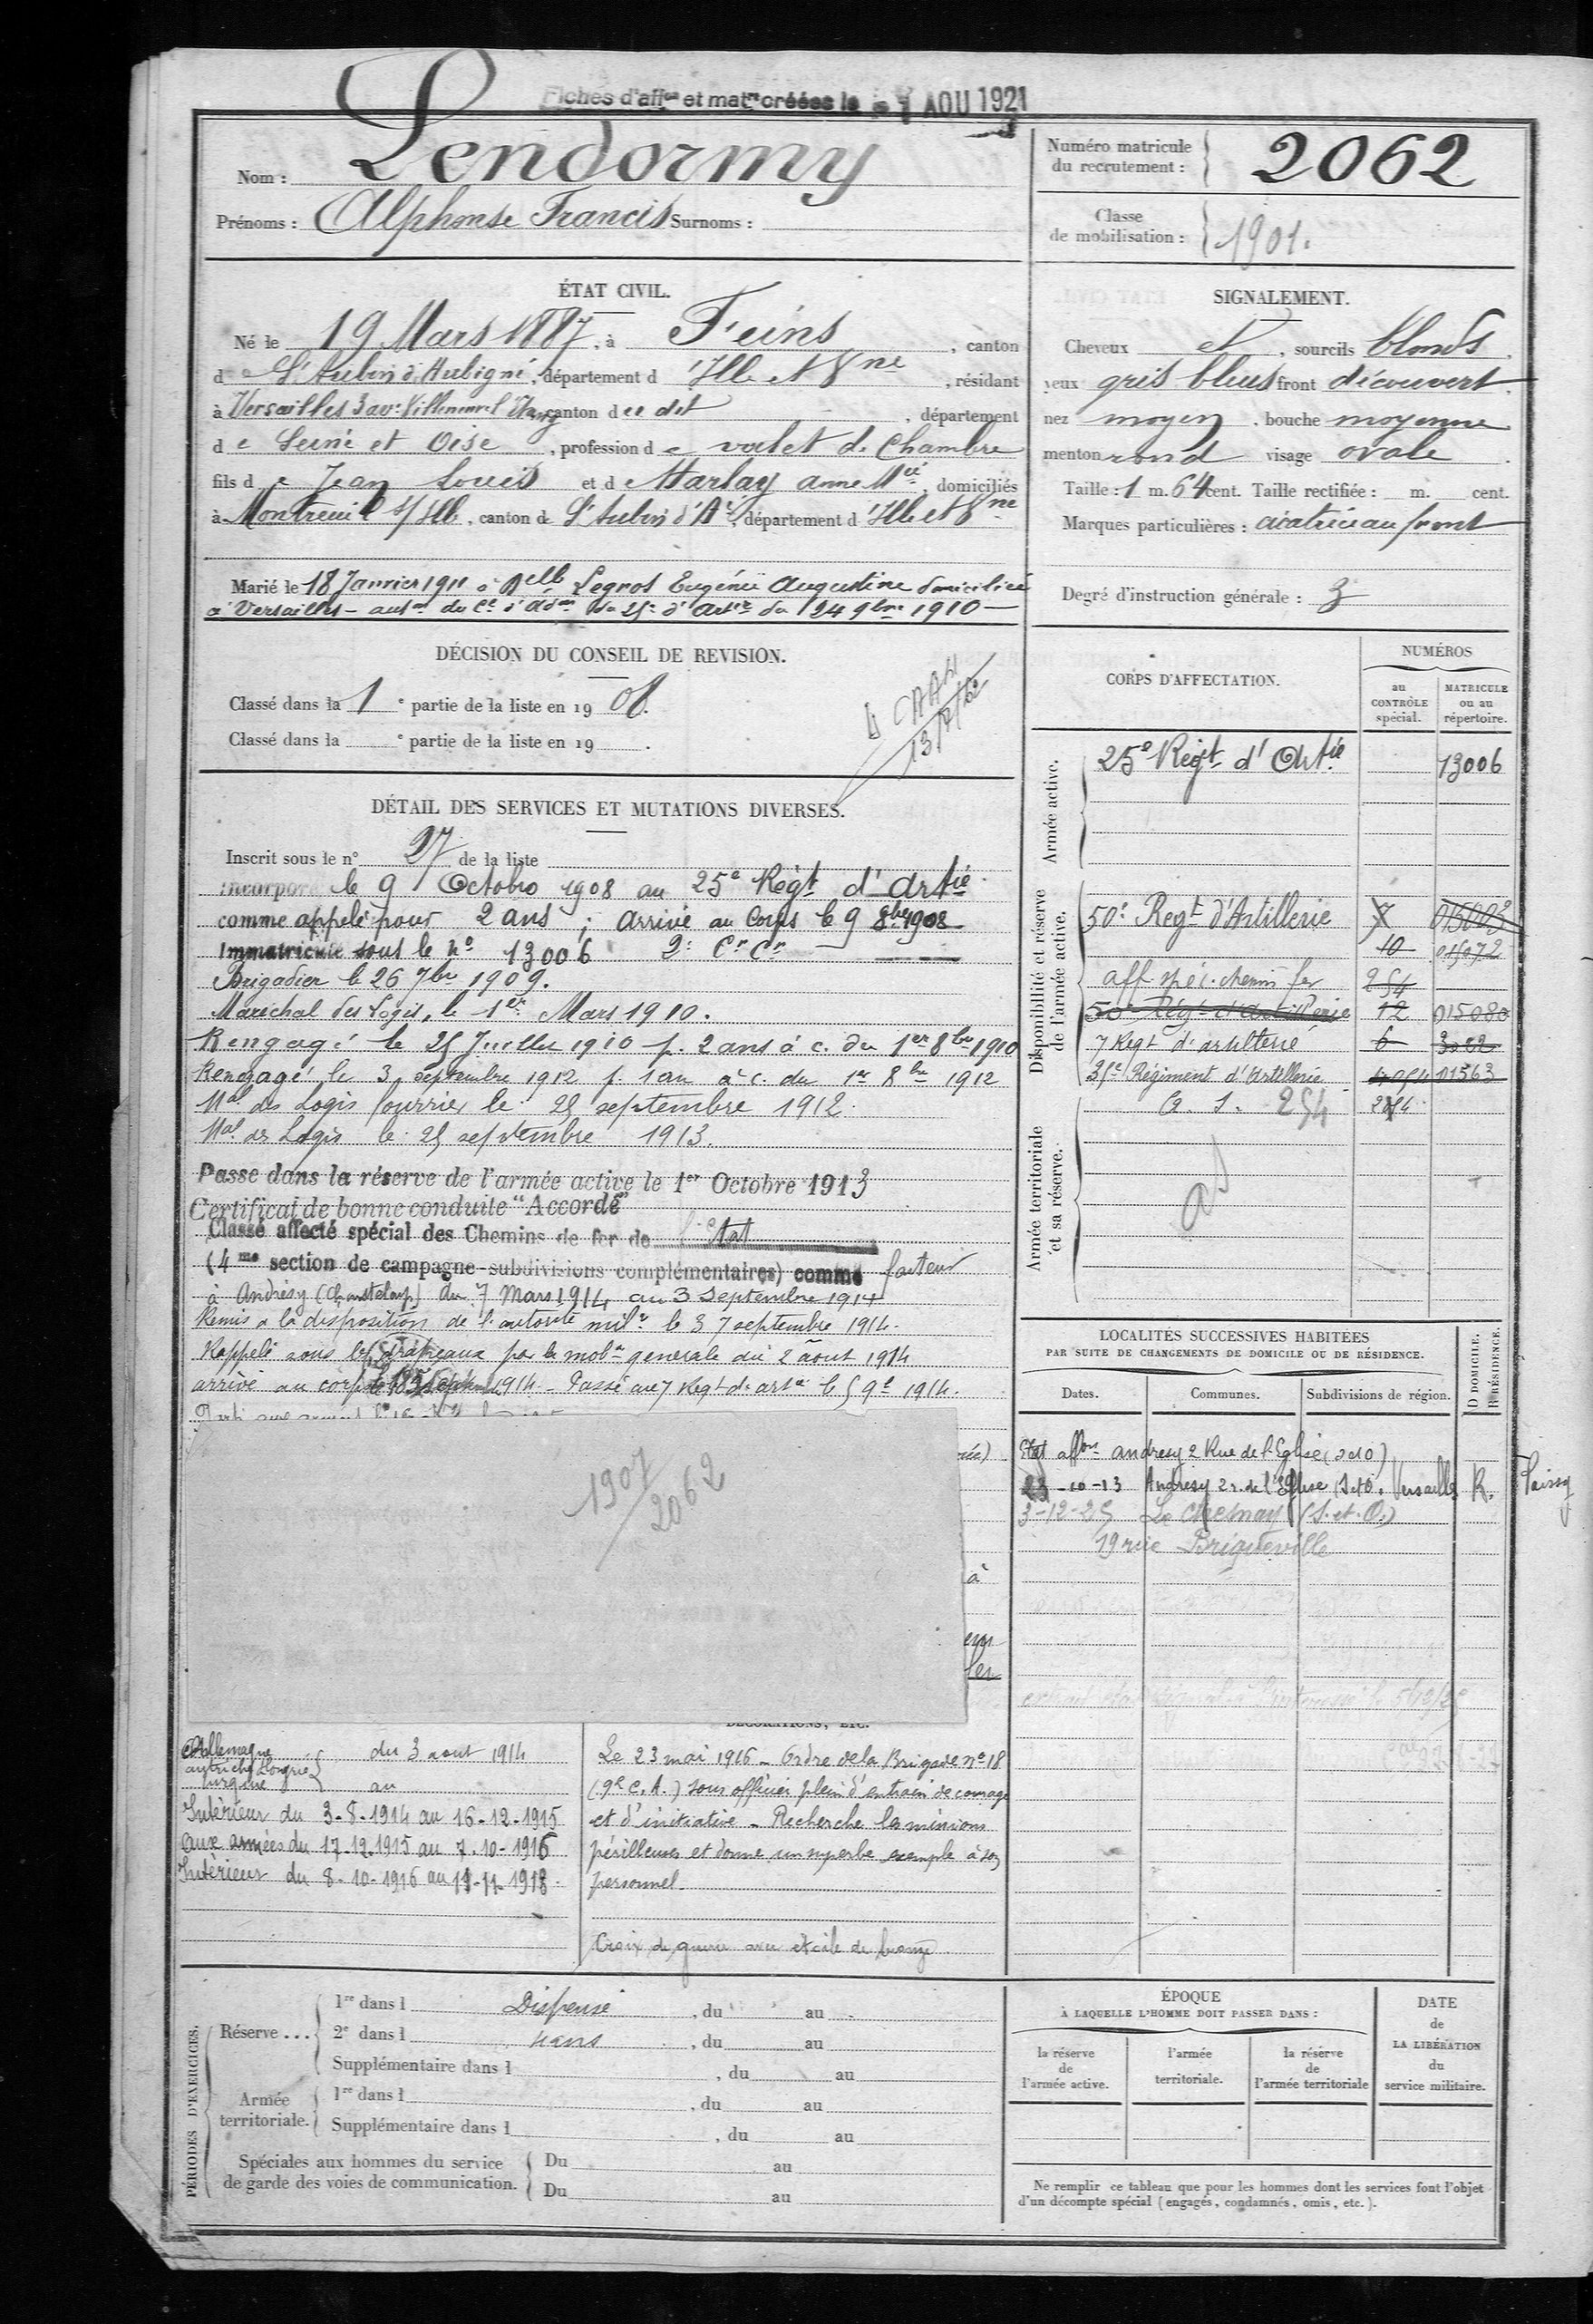 Fiches d'aff on et mat re créées le - 1 AOU 1921
Nom : Lendormy
Prénoms : Alphonse Francis Surnoms :
Numéro matricule du recrutement : 2062
Classe de mobilisation : 1901.
ÉTAT CIVIL.
Né le 19 Mars 1887, à Feins, canton
d St Aubin d'Aubigné, département d'Ille et Vne, résidant
à Versailles 3 av: canton de dit, département
de Seine et Oise, profession de valet de Chambre
fils de Jean Louis et d Harlay Anne Mie, domiciliés
à Montreuil s/ Ille, canton de St Aubin d'Aé, département d'Ille et Vne
Marié le 18 Janvier 1911 à Delle Legros Eugénie Augustine domiciliée
à Versailles - auton du Cl d'Adon du 25e d'Artie du 24 9bre 1910
SIGNALEMENT.
Cheveux et, sourcils blonds
yeux gris bleus front découvert
nez moyen, bouche moyenne
menton rond visage ovale
Taille : 1 m. 64 cent. Taille rectifiée : m. cent.
Marques particulières : cicatrice au front
Degré d'instruction générale : 3
DÉCISION DU CONSEIL DE REVISION.
Classé dans la 1 e partie de la liste en 19 08.
Classé dans la e partie de la liste en 19 .
CORPS D'AFFECTATION.
NUMÉROS
au CONTRÔLE spécial.
MATRICULE ou au répertoire.
Armée active.
25e Régt d'Artie 13006
Disponibilité et réserve de l'armée active.
50e Regt d'Artillerie 7 015003
10 015072
aff spéc. chemin fer 254
50e Régt d'Artillerie 12 015080
7 Regt d'artillerie 6 3022
35e Régiment d'Artillerie 01563
Armée territoriale et sa réserve.
A. S. 254
DÉTAIL DES SERVICES ET MUTATIONS DIVERSES.
Inscrit sous le n° 27 de la liste
Incorporé le 9 Octobre 1908 au 25e Régt d'Artie
comme appelé pour 2 ans ; arrivé au Corps le 9 8bre 1908
Immatriculé sous le no 13006 2e Cr Cr
Brigadier le 26 7bre 1909.
Maréchal des Logis, le 1er Mars 1910.
Rengagé le 25 Juillet 1910 p. 2 ans à c. du 1er 8bre 1910
Rengagé le 3 septembre 1912 p. 1 an à c. du 1er 8bre 1912
Mal des Logis fourrier le 25 septembre 1912.
Mal des Logis le 25 septembre 1913.
Passé dans la réserve de l'armée active le 1er Octobre 1913
Certificat de bonne conduite "Accordé"
Classé affecté spécial des Chemins de fer de l'Etat
(4me section de campagne-subdivisions complémentaires) comme facteur
à Andrésy (Chanteloup) du 7 Mars 1914 au 3 Septembre 1914
Remis à la disposition de l'autorité milre le 3 7 septembre 1914.
Rappelé sous les drapeaux par la mobon generale du 2 août 1914
arrivé au corps 1914 - Passé au 7 Regt d'artie le 1914.
1907
2062
LOCALITÉS SUCCESSIVES HABITÉES
PAR SUITE DE CHANGEMENTS DE DOMICILE OU DE RÉSIDENCE.
Dates. Communes. Subdivisions de région. D DOMICILE. R RÉSIDENCE.
Etat affon andresy 2 Rue de l'Eglise (S et O)
23-10-13 Andresy 2 r. de l'Eglise S et O. Versailles R. Poissy
3-12-25 Le Chesnay (S. et. O.)
19 rue Briqueville
DÉCORATIONS, ETC.
Allemagne
autriche Hongrie
turquie
du 3 aout 1914
au
Intérieur du 3-8-1914 au 16-12-1915
aux armées du 17-12-1915 au 7-10-1916
Intérieur du 8-10-1916 au 11-11-1918.
Le 23 mai 1916 - Ordre de la Brigade no 18
(9e C. A.) sous officier plein d'entrain de courage
et d'initiative - Recherche les missions
périlleuses et donne un superbe exemple à son
personnel.
Croix de guerre avec etoile de bronze
PÉRIODES D'EXERCICES.
Réserve ...
1re dans l Dispensé, du au
2e dans l 4 ans, du au
Supplémentaire dans l , du au
Armée territoriale.
1re dans l , du au
Supplémentaire dans l , du au
Spéciales aux hommes du service de garde des voies de communication.
Du au
Du au
ÉPOQUE
À LAQUELLE L'HOMME DOIT PASSER DANS :
la réserve de l'armée active.
l'armée territoriale.
la réserve de l'armée territoriale
DATE de LA LIBÉRATION du service militaire.
Ne remplir ce tableau que pour les hommes dont les services font l'objet
d'un décompte spécial (engagés, condamnés, omis, etc.).